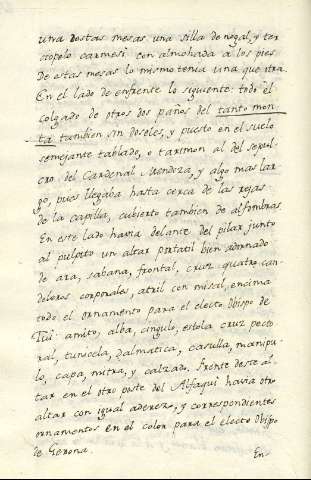 una destas mesas una silla de nogal, y ter
ciopelo carmesi con almohada a los pies
De estas mesas lo mismo tenia una que otra.
En el lado de enfrente lo siguiente: todo él
colgado de otros dos paños del tanto mon
ta tambien sin doseles, y puesto en el suelo
semejante tablado, o tarimon al del sepul-
cro del Cardenal Mendoza, y algo mas lar
go, pues llegaba hasta cerca de las rejas
de la capilla, cubierto tambien de alfombras
En este lado havia delante del pilar junto
al pulpito un altar portatil bien adornado
de ara, sabana, frontal, cruz quatro can-
deleros corporales, atril con misal, encima
todo el ornamento para el electo Obispo de
Tui: amito, alba, cingulo, estola cruz pecto
ral, tunicela, dalmatica, casulla, manipu-
lo, capa, mitra, y calzado. Frente deste al-
tar en el otro poste del Alfaqui havia otro
altar con igual aderezo, y correspondientes
ornamentos en el color para el electo Obispo
de Gerona.
En